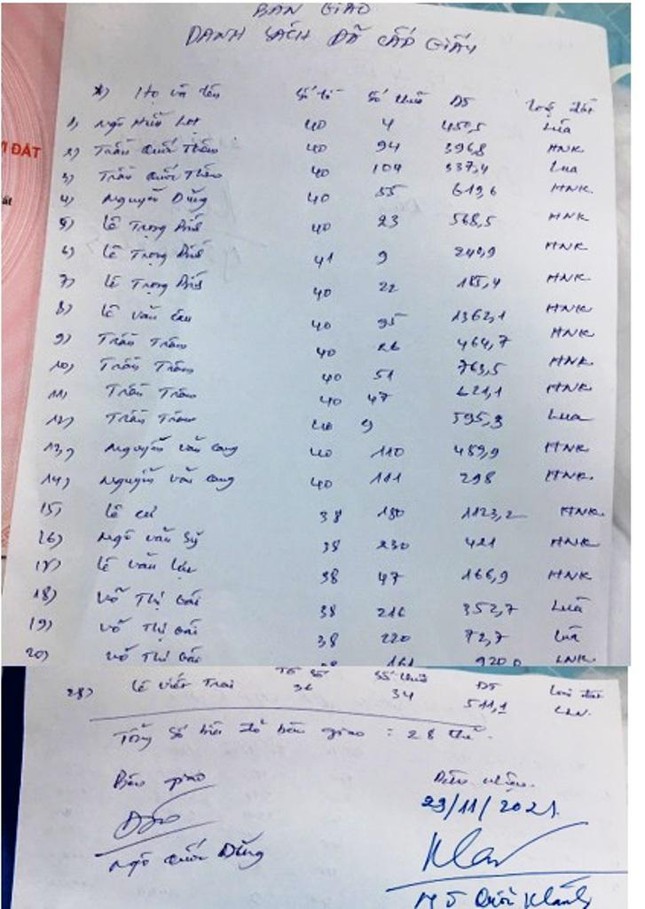 BÀN GIAO
DANH SÁCH ĐÃ CẤP GIẤY
Họ và tên Số tờ Số thửa DT Loại đất
I ĐẤT
1) Ngô Hữu 40 4 450,5 Lúa
2) Trần Quốc Thắm 40 94 396,8 HNK
3) Trần Quốc Thắm 40 104 337,4 Lúa
4) Nguyễn Dũng 40 55 619,6 HNK
5) Lê Trọng 40 23 568,5 HNK
6) Lê Trọng 41 9 240,9 HNK
7) Lê Trọng 40 22 185,4 HNK
8) Lê Văn 40 95 1362,1 HNK
9) Trần Trâm 40 26 464,7 HNK
10) Trần Trâm 40 51 763,5 HNK
11) Trần Trâm 40 47 621,1 HNK
12) Trần Trâm 40 9 595,3 Lúa
13) Nguyễn Văn Cang 40 110 459,9 HNK
14) Nguyễn Văn Cang 40 111 298 HNK
15) Lê Cư 38 180 1123,2 HNK
16) Ngô Văn Sỹ 38 230 421 HNK
17) Lê Văn 38 47 166,9 HNK
18) Võ Thị Gái 38 216 352,7 Lúa
19) Võ Thị Gái 38 220 72,7 Lúa
20) Võ Thị Gái 161 920
28) Lê Viết Trai 36 34 511,1
Tờ số Số thửa DT Loại đất
Tổng số bìa đỏ bàn giao = 28
Bên giao Bên nhận
29/11/2021
Ngô Quốc Dũng
Quốc Khánh